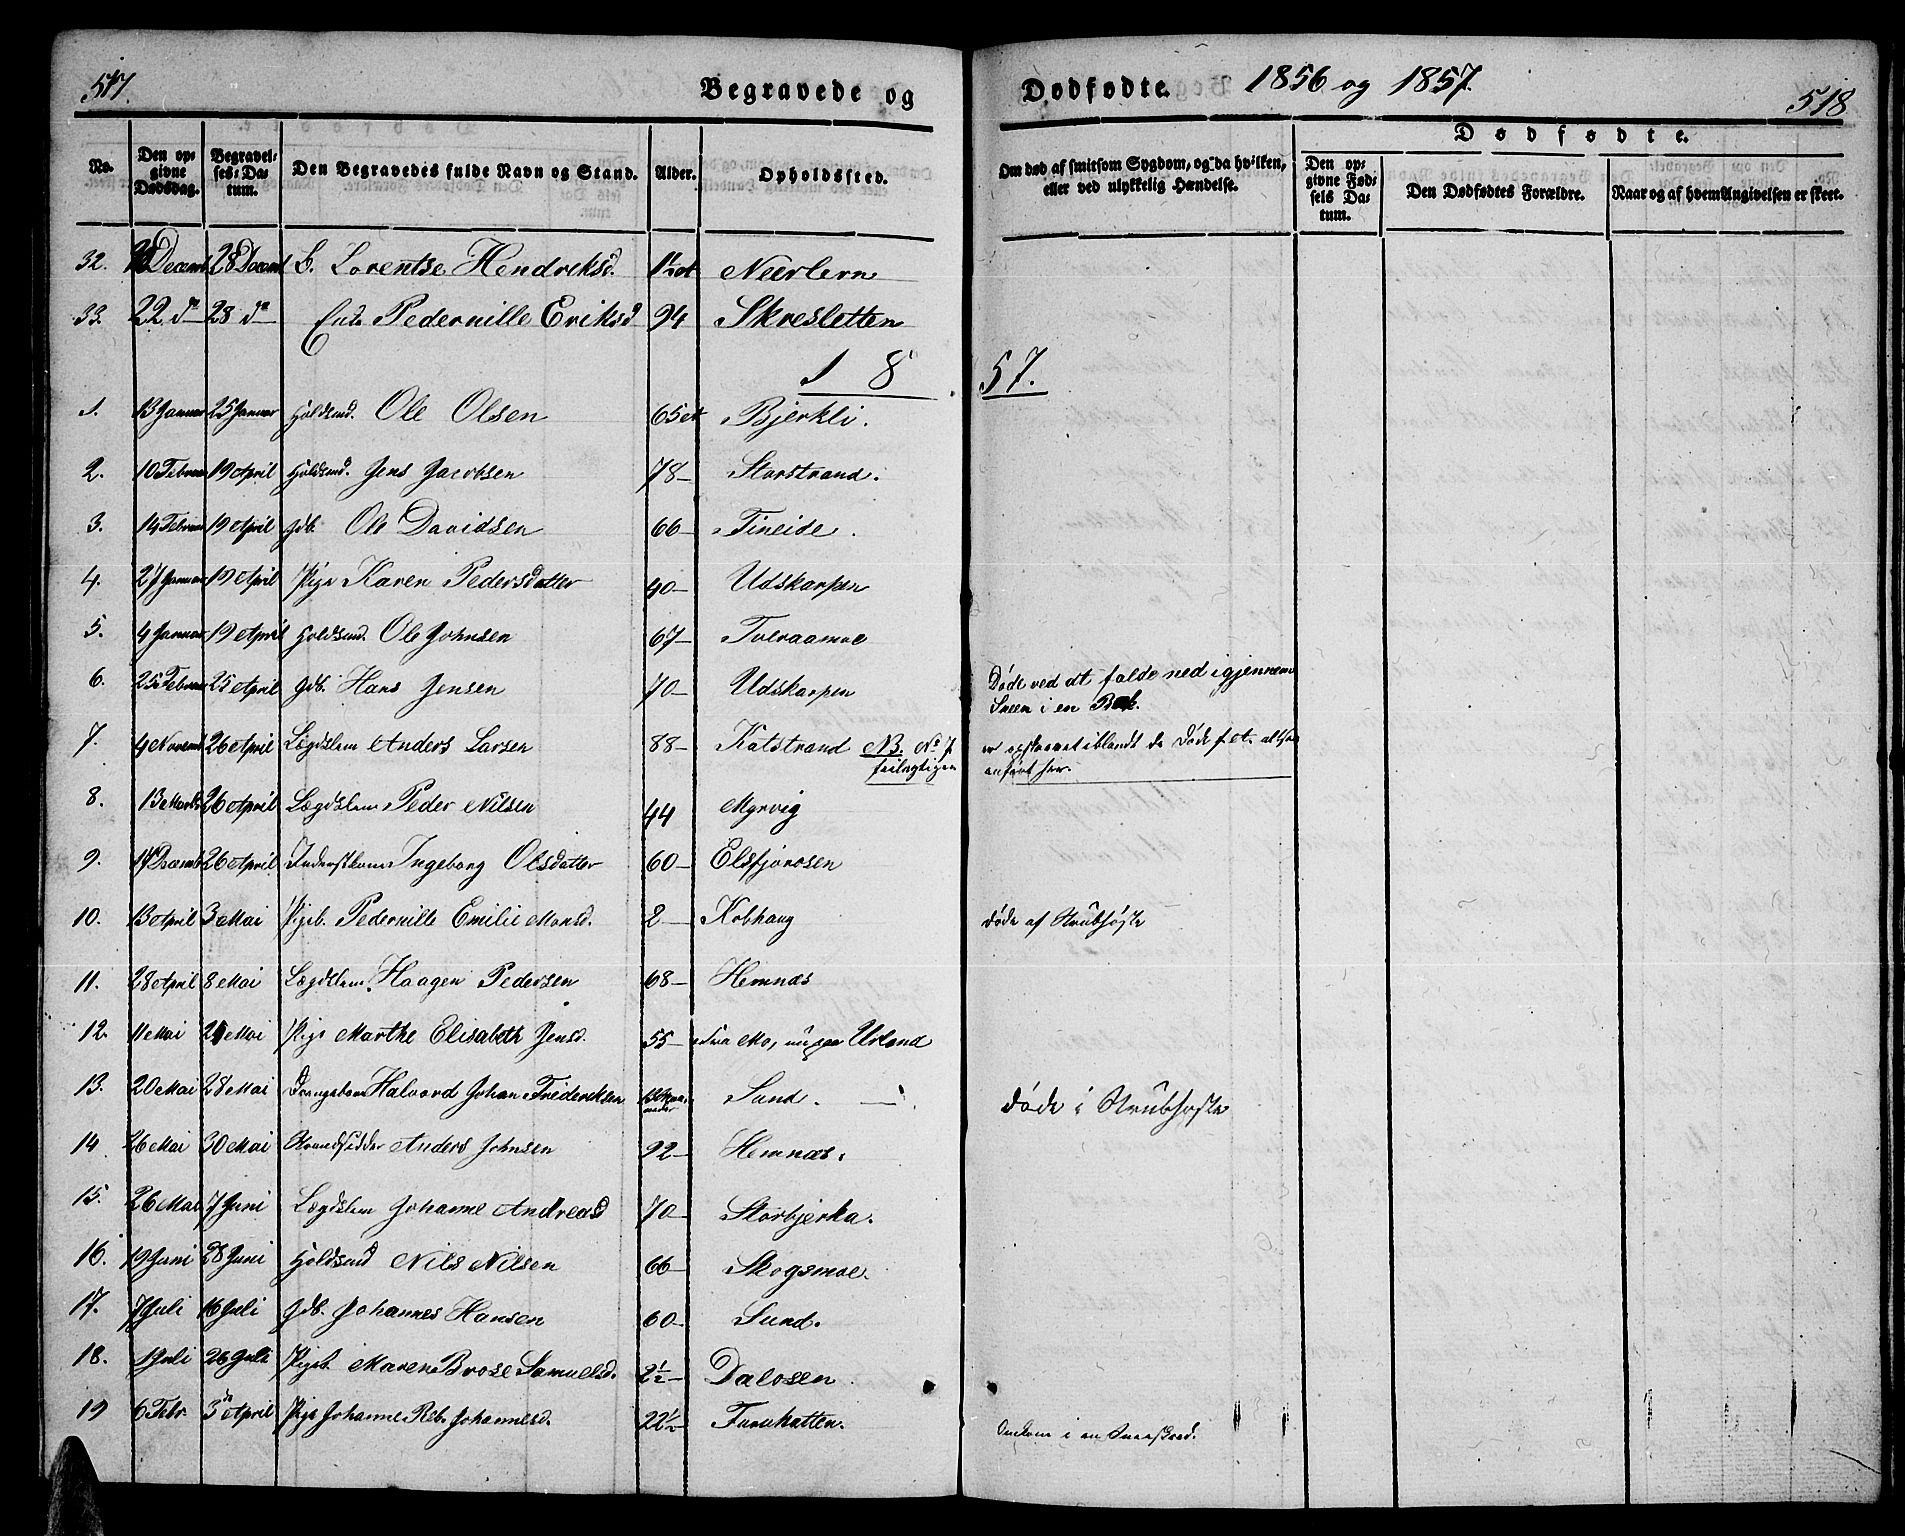 517.
Begravede og
Dødfødte. 1856 og 1857.
518
No.
Den opgivne Dødsdag.
Begravelses-Datum.
Den Begravedes fulde Navn og Stand.
Alder.
Opholdssted.
Om død af smitsom Sygdom, og da hvilken, eller ved ulykkelig Hændelse.
Dødfødte.
Den opgivne Fødsels Datum.
Den Dødfødtes Forældre.
Naar og af hvem Angivelsen er skeet.
32. Decemb 28 Decemb Lorentse Hendriksd. Neerlern
33. 22 do 28 do Enke Pedernille Eriksd 94 Skresletten
18 57.
1. 13 Januar 25 Januar Holdsmd. Ole Olsen 65 Bjerkli.
2. 10 Februar 19 April Holdsmd. Jens Jacobsen 78 – Storstrand.
3. 14 Februar 19 April Gdb. Ole Davidsen 66 – Fineide.
4. 27 Januar 19 April Pige Karen Pedersdatter 40 – Udskarpen
5. 4 Januar 19 April Holdsmd. Ole Johnsen 67 – Tveraamoe
6. 25 Februar 25 April Gdb. Hans Jensen 70 – Udskarpen Døde ved at falde ned igjennem
Sneen i en Bæk.
7. 4 Novemb 26 April Lægdslem Anders Larsen 88 – Katstrand NB. No 7 er opskrevet iblandt de Døde f. A. altsaa
feilagtigen anført her.
8. 13 Marts 26 April Lægdslem Peder Nilsen 44 Myrvig
9. 14 Decemb 26 April Inderstkone Ingeborg Olsdatter 60 – Elsfjorosen
10. 13 April 3 Mai Pigeb. Pedernille Emilie Monsd. 2 – Kobhaug døde af Strubehoste
11. 28 April 8 Mai Lægdslem Haagen Pedersen 68 – Hemnæs
12. 11 Mai 21 Mai Pige Marthe Elisabeth Jensd. 55 – fra Mo, Urland
13. 20 Mai 28 Mai Drengebarn Halvard Johan Frederiksen Maaneder Sund. døde i Strubhoste
14 26 Mai 30 Mai Strandsidder Anders Johnsen 92 – Hemnæs.
15. 26 Mai 7 Juni Lægdslem Johanne Andreasd 70 – Storbjerka.
16. 19 Juni 28 Juni Holdsmd Nils Nilsen 66 – Skogsmoe.
17. 7 Juli 16 Juli Gdb. Johannes Hansen 60 – Sund.
18. 1 Juli 26 Juli Pigeb. Maren Brose Samuelsd. 2½ – Dalosen
19 6 Febr. 3 April Pige Johanne Reb. Johannesd. 22½ – Furuhatten. Omkom i en Sneeskred.